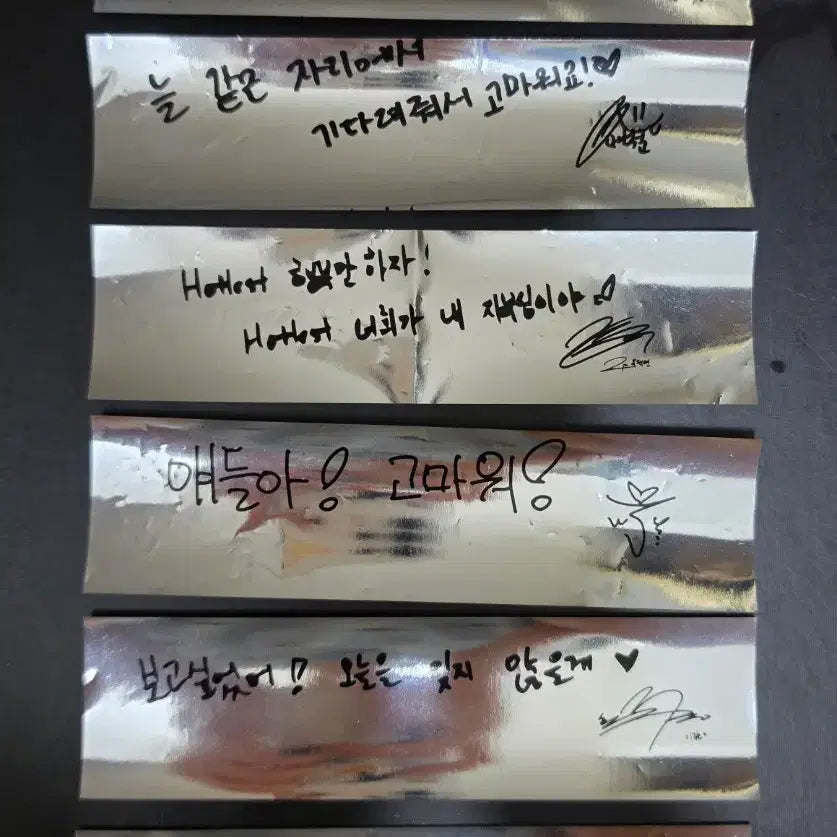 늘 같은 자리에서
기다려줘서 고마워요!♡
Hottest 행복만 하자!
Hottest 너희가 내 자부심이야♡
얘들아! 고마워!
보고싶었어! 오늘은 잊지 않을게 ♥